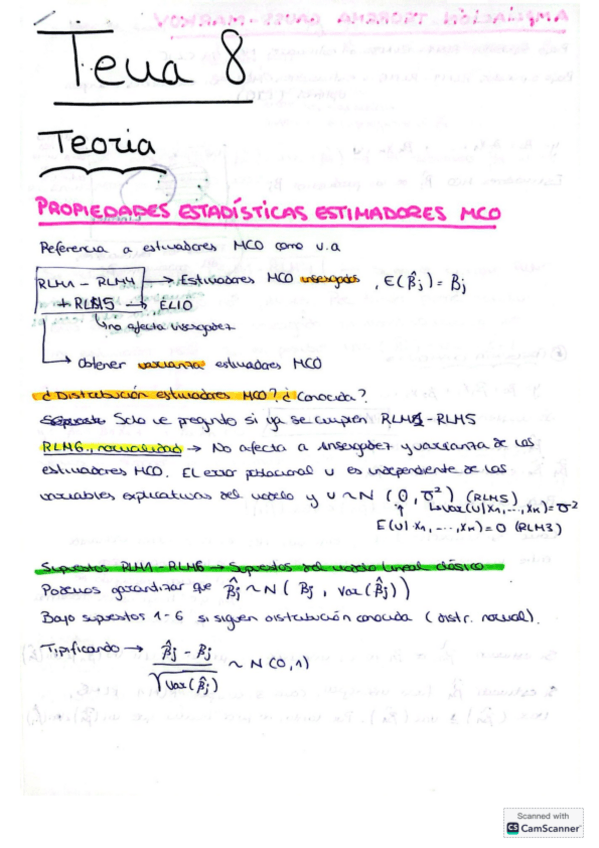 Tema 8
Teoria
PROPIEDADES ESTADÍSTICAS ESTIMADORES MCO
Referencia a estimadores MCO como v.a
RLM1 - RLM4 → Estimadores MCO insesgados, E(β̂j) = βj
+ RLM5 → ELIO
↳ no afecta insesgadez
↳ Obtener varianza estimadores MCO
¿Distribución estimadores MCO? ¿Conocida?
Solo me pregunto si ya se cumplen RLM1-RLM5
RLM6, normalidad → No afecta a insesgadez y varianza de los
estimadores MCO. El error poblacional u es independiente de las
variables explicativas del modelo y u ~ N (0, σ²) (RLM5)
↳ Var(u|x1,...,xk) = σ²
E(u|x1,...,xk) = 0 (RLM3)
Supuestos RLM1-RLM6 → Supuestos del modelo lineal clásico
Podemos garantizar que β̂j ~ N (βj, Var(β̂j))
Bajo supuestos 1-6 si siguen distribución conocida (distr. normal).
Tipificando → (β̂j - βj) / √Var(β̂j) ~ N(0,1)
Scanned with
CS CamScanner